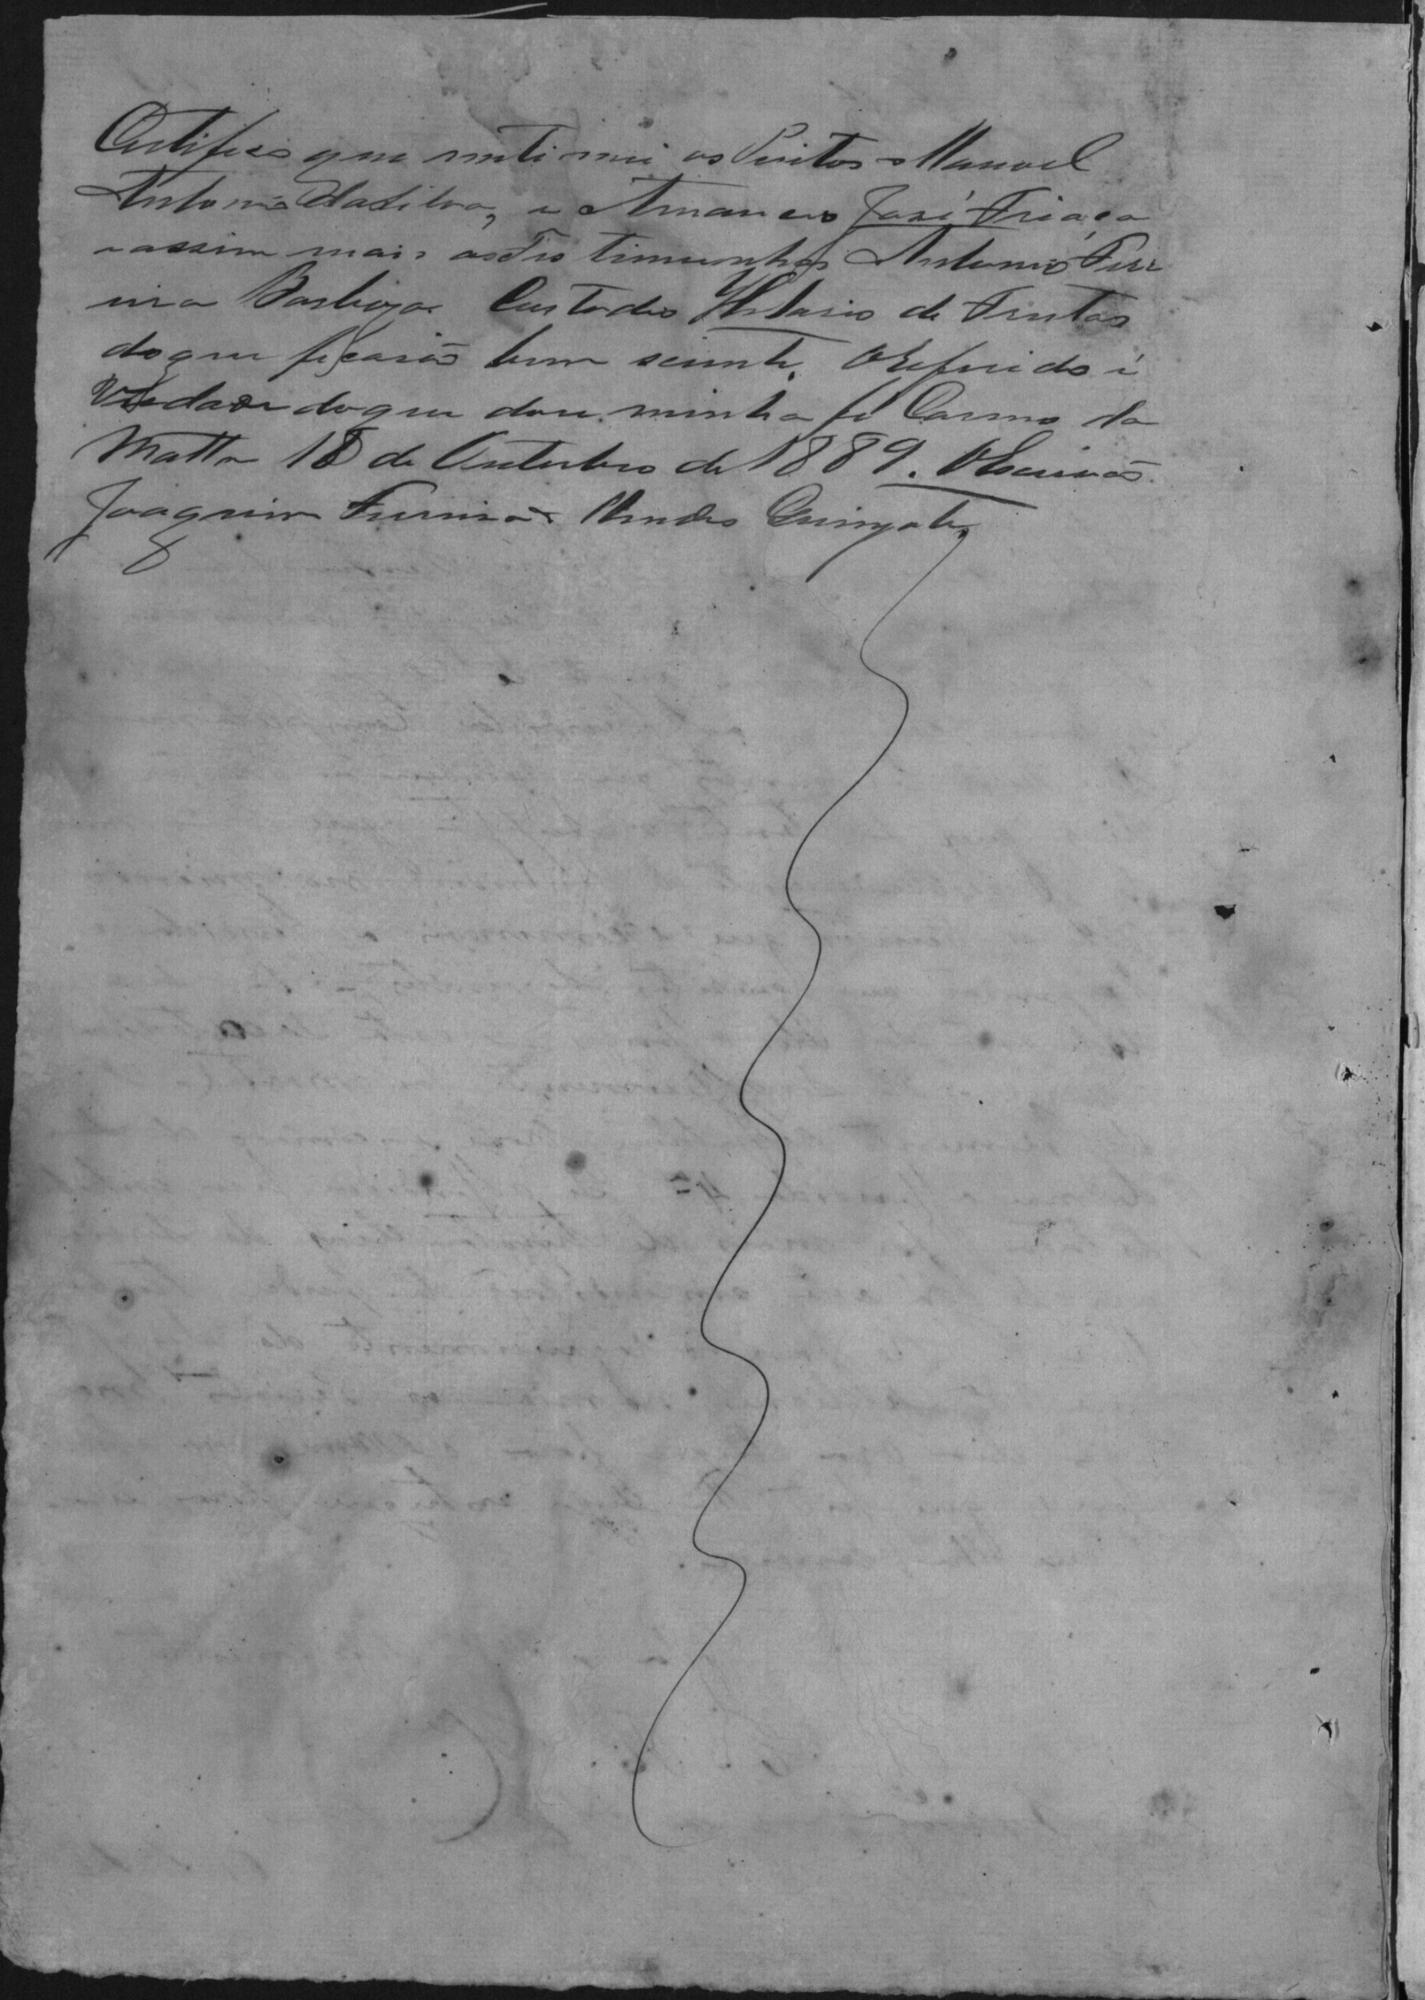 Certifico que intimei os Peritos Manoel
Antonio da Silva, e Amancio José Friaça
e assim mais as Tes timunhas Antonio Ferr
eira Barboza Custodio Hilario de Freitas
do que ficarão bem sciente. O Referido é
Verdade do que dou minha fé Carmo da
Matta 18 de Outubro de 1889. O Escrivão
Joaquim Ferreira Mendes